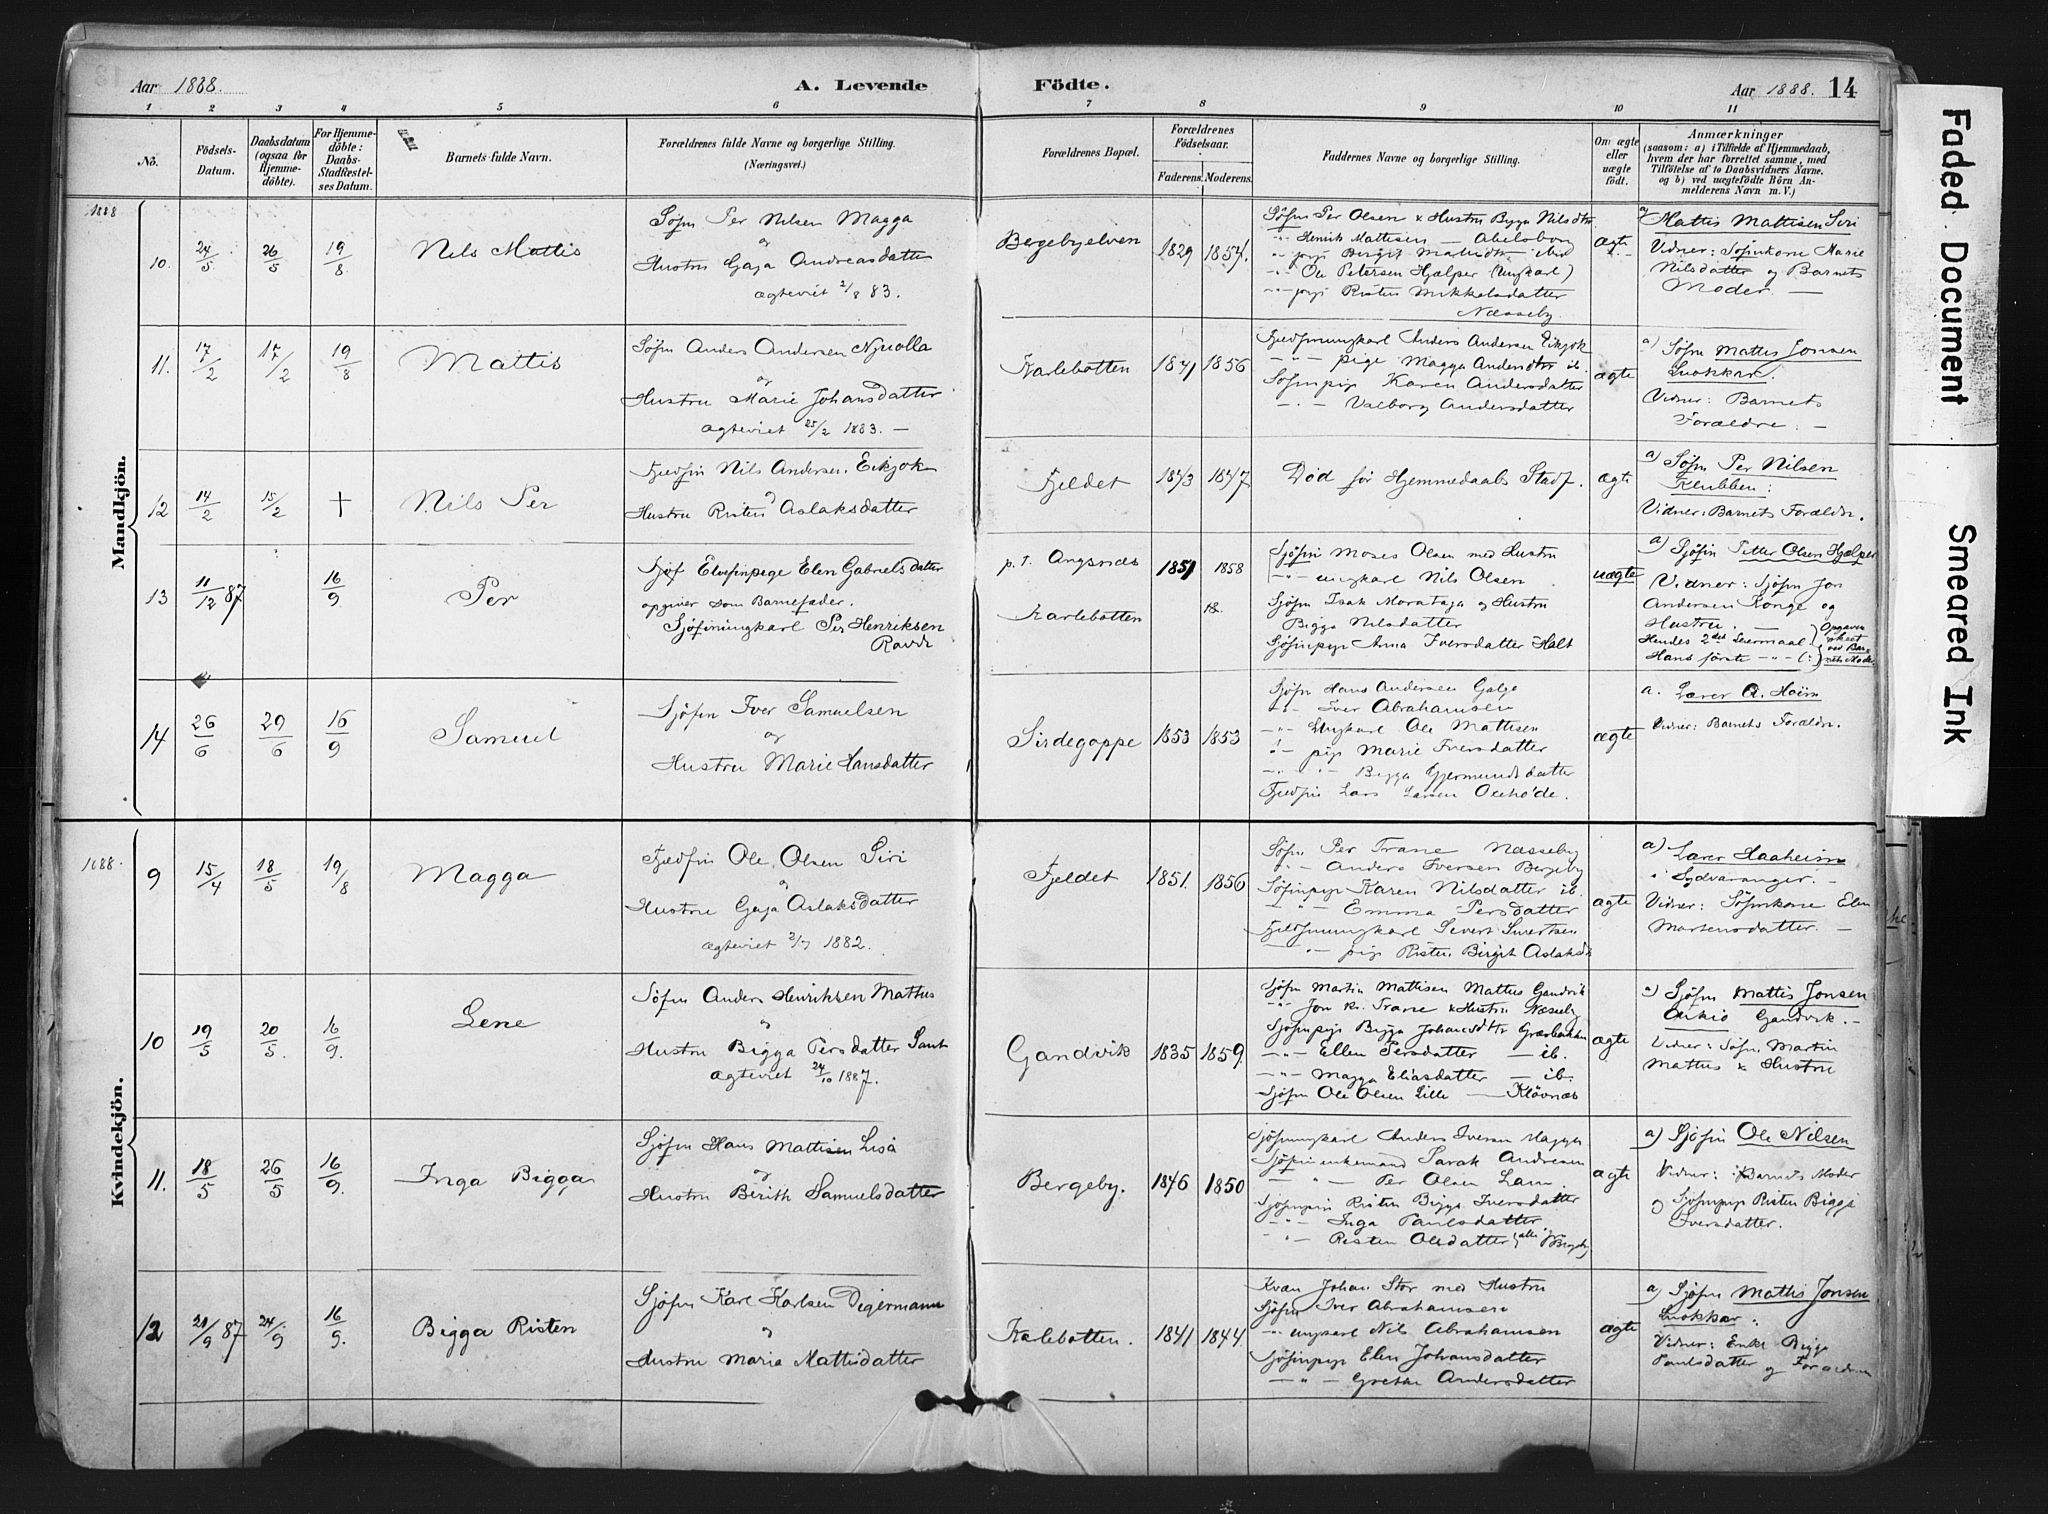 Aar 1888.
A. Levende
Födte.
Aar 1888. 14
1 2 3 4 5 6 7 8 9 10 11
No.
Födsels-
Datum.
Daabsdatum
(ogsaa for
Hjemme-
döbte).
For Hjemme-
döbte:
Daabs-
Stadfæstel-
ses Datum.
Barnets fulde Navn.
Forældrenes fulde Navne og borgerlige Stilling.
(Næringsvei.)
Forældrenes Bopæl.
Forældrenes
Födselsaar.
Faderens. Moderens.
Faddernes Navne og borgerlige Stilling.
Om ægte
eller
uægte
födt.
Anmærkninger
(saasom: a) i Tilfælde af Hjemmedaab,
hvem der har forrettet samme, med
Tilföielse af to Daabsvidners Navne.
og b) ved uægtefödte Börn An-
melderens Navn m. V.)
Mandkjön.
1888
10. 24/5 26/5 19/8
Nils Mattis
Söfin Per Nilsen Magga
og
Hustru Gaja Andreasdatter
ægteviet 2/8 83.
Bergebyelven
1829 1857.
Söfin Per Olsen & Hustru Bigga Nilsdtr
-"- Henrik Mattisen — Abelsborg
-"- pige Birgit Mattisdtr ibid
-"- Ole Petersen Hjælper (Ungkarl)
-"- pige Risten Mikkelsdatter
Næsseby.
ægte
a) Mattis Mattisen Siri
Vidner: Söfinkone Marie
Nilsdatter og Barnets
Moder. —
11. 17/2 17/2 19/8
Mattis
Söfin Anders Andersen Njuolla
og
Hustru Marie Johansdatter
ægteviet 25/2 1883. —
Karlebotten
1841 1856
Fjeldfinungkarl Anders Andersen Eikjok
— " — pige Magga Andersdtr ib.
Söfinpige Karen Andersdatter
— " — Valborg Andersdatter
ægte
a) Söfin Mattis Jonsen
Luokkar.
Vidner: Barnets
Forældre. —
12 14/2 15/2 †
Nils Per
Fjeldfin Nils Andersen Eikjok
og
Hustru Risten Aslaksdatter
Fjeldet
1843 1847
Död för Hjemmedaabs Stadf.
ægte
a) Söfin Per Nilsen
Klubben:
Vidner: Barnets Forældre.
13 11/12 87 16/9
Per
Elvefinpige Elen Gabrielsdatter
opgiver som Barnefader.
Sjöfinungkarl Per Henriksen
Ravdi
p. t. Angsnæs
Karlebotten
1851 1858
18.
Sjöfin Moses Olsen med Hustru
-"- ungkarl Nils Olsen
Sjöfin Isak Morataja og Hustru
Bigga Nilsdatter
Sjöfinpige Anna Iversdatter Halt
uægte
a) Sjöfin Petter Olsen Hjælper
Vidner: Sjöfin Jon
Andersen Konge og
Hustru. —
Hendes 2det Leiermaal
Hans förste -"- (:)
Opgaven
skeet
ved Bar-
nets Moder
14 26/6 29/6 16/9
Samuel
Sjöfin Iver Samuelsen
og
Hustru Marie Hansdatter
Sirdegoppe
1853 1853
Sjöfin Hans Andersen Galge
-"- Iver Abrahamsen
-"- Ungkarl Ole Mattisen
-"- pige Marie Iversdatter
-"- " — Bigga Gjermundsdatter
Fjeldfin Lars Larsen
ægte
a. Lærer A. Heim
Vidner: Barnets Forældre.
Kvindekjön.
1888.
9 15/4 18/5 19/8
Magga
Fjeldfin Ole Olsen Siri
og
Hustru Gaja Aslaksdatter
ægteviet 2/7 1882.
Fjeldet
1851. 1856
Söfin Per Trane Næsseby
-"- Anders Iversen Bergeby
Söfinpige Karen Nilsdatter ib.
— " — Emma Persdatter
Fjeldfinungkarl Sivert Sivertsen
— " — pige Risten Birgit Aslaksdtr
ægte
a) Lærer Haaheim
Sydvaranger. —
Vidner: Söfinkone Elen
Mortensdatter. —
10 19/5 20/5. 16/9.
Lene
Söfin Anders Henriksen Mattus
og
Hustru Bigga Persdatter
ægteviet 24/10 1887.
Gandvik
1835 1859.
Sjöfin Martin Mattisen Mattus Gandvik
-"- Jon Kr. Trane & Hustru Næsseby
Sjöfinpige Bigga Johansdtr Græsbakken
-"- Ellen Persdatter — ib.
-"- Magga Eliasdatter — ib.
Sjöfin Ole Olsen Lille — Klövnæs
ægte
a) Sjöfin Mattis Jonsen
Aikio Gandvik. —
Vidner: Söfin Martin
Mattus & Hustru
11. 18/5 26/5 16/9.
Inga Bigga
Sjöfin Hans Mattisen Lisa
og
Hustru Berith Samuelsdatter
Bergeby.
1846 1850
Sjöfinungkarl Anders Iversen Magga
Sjöfinenkemand Sarak Andersen
— " — Per Olsen Lam.
Sjöfinpige Risten Bigga Iversdatter
— " — Inga Paulsdatter
— " — Risten Olsdatter (alle Bergeby)
ægte
a) Sjöfin Ole Nilsen
Vidner: Barnets Moder
og Sjöfinpige Risten Bigga
Iversdatter.
12 21/9 87 24/9 16/9.
Bigga Risten
Sjöfin Karl Karlsen Digermann
og
Hustru Maria Mattisdatter
Karlebotten.
1841 1844.
Kvæn Johan Stor med Hustru
Sjöfin Iver Abrahamsen
-"- ungkarl Nils Abrahamsen
Sjöfinpige Elen Johansdatter
— " — Grethe Andersdatter
ægte
a) Sjöfin Mattis Jonsen
Luokkar.
Vidner: Enke Bigga
Paulsdatter og Forældrene
Faded Document
Smeared Ink